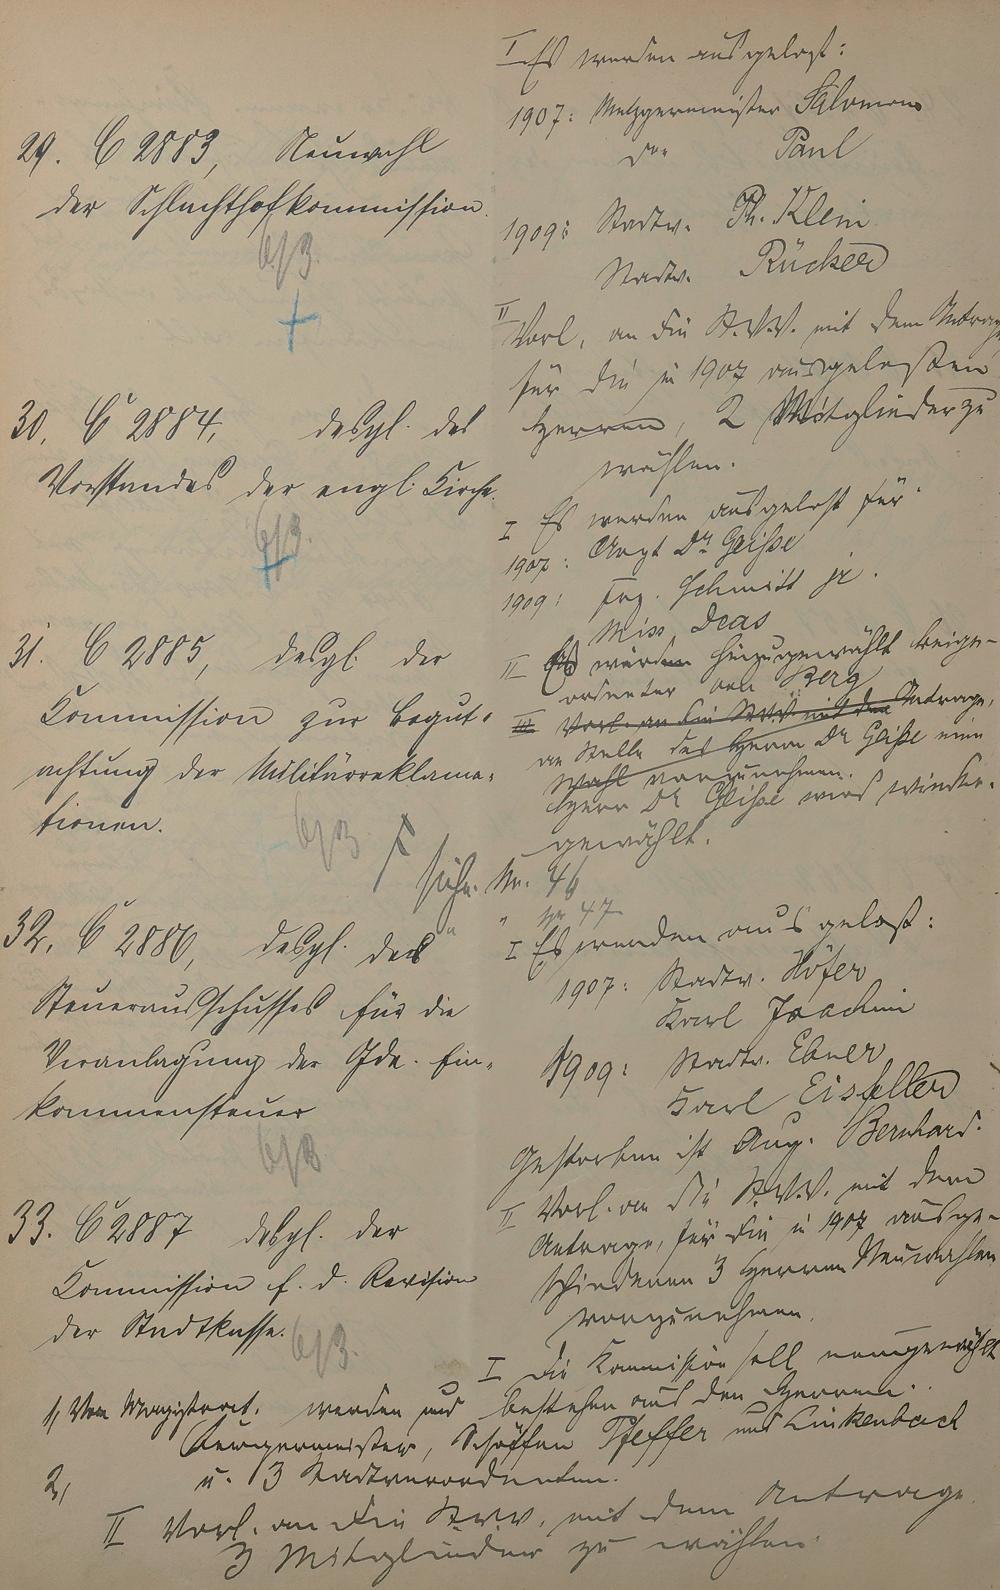 29. C 2883, Neuwahl
der Schlachthofkommission.
6/3.
30. C 2884, desgl. des
Vorstandes der engl. Kirche.
6/3.
31. C 2885, desgl. der
Commission zur Begut-
achtung der Militärreklama-
tionen.
6/3
siehe Nr. 46
" Nr 47
32. C 2886, desgl. des
Steuerausschusses für die
Veranlagung der Gde. Ein-
kommensteuer
6/3
33. C 2887 desgl. der
Commission f. d. Revision
der Stadtkasse.
6/3.
I Es werden ausgelost:
1907: Metzgermeister Salomon
do Paul
1909: Stadtv. Ph. Klein
Stadtv. Rücker
II Vorl. an die St.V.V. mit dem Antrage
für die in 1907 ausgelosten
Herren, 2 Mitglieder zu
wählen.
I Es werden ausgelost für
1907: Arzt Dr Geisse
1909: Schmitt jr.
Miss Deas
II Es wurden hinzugewählt Beige-
ordneter von Berg
III Vorl. an die St.V.V. mit dem Antrage,
an Stelle des Herrn Dr Geisse eine
Wahl vorzunehmen.
Herr Dr Geisse wird wieder-
gewählt.
I Es werden ausgelost:
1907: Stadtv. Höfer
Karl Joachim
1909: Stadtv. Ebner
Karl
Gestorben ist Aug. Bernhard.
II Vorl. an die St.V.V. mit dem
Antrage, für die in 1907 ausge-
schiedenen 3 Herren Neuwahlen
vorzunehmen.
I Die Kommission soll neugewählt
werden und bestehen aus den Herren:
1, Vom Magistrat.
Bürgermeister, Schöffen Pfeffer und Linkenbach
2, u. 3 Stadtverordneten.
II Vorl. an die St.V.V. mit dem Antrage
3 Mitglieder zu wählen.